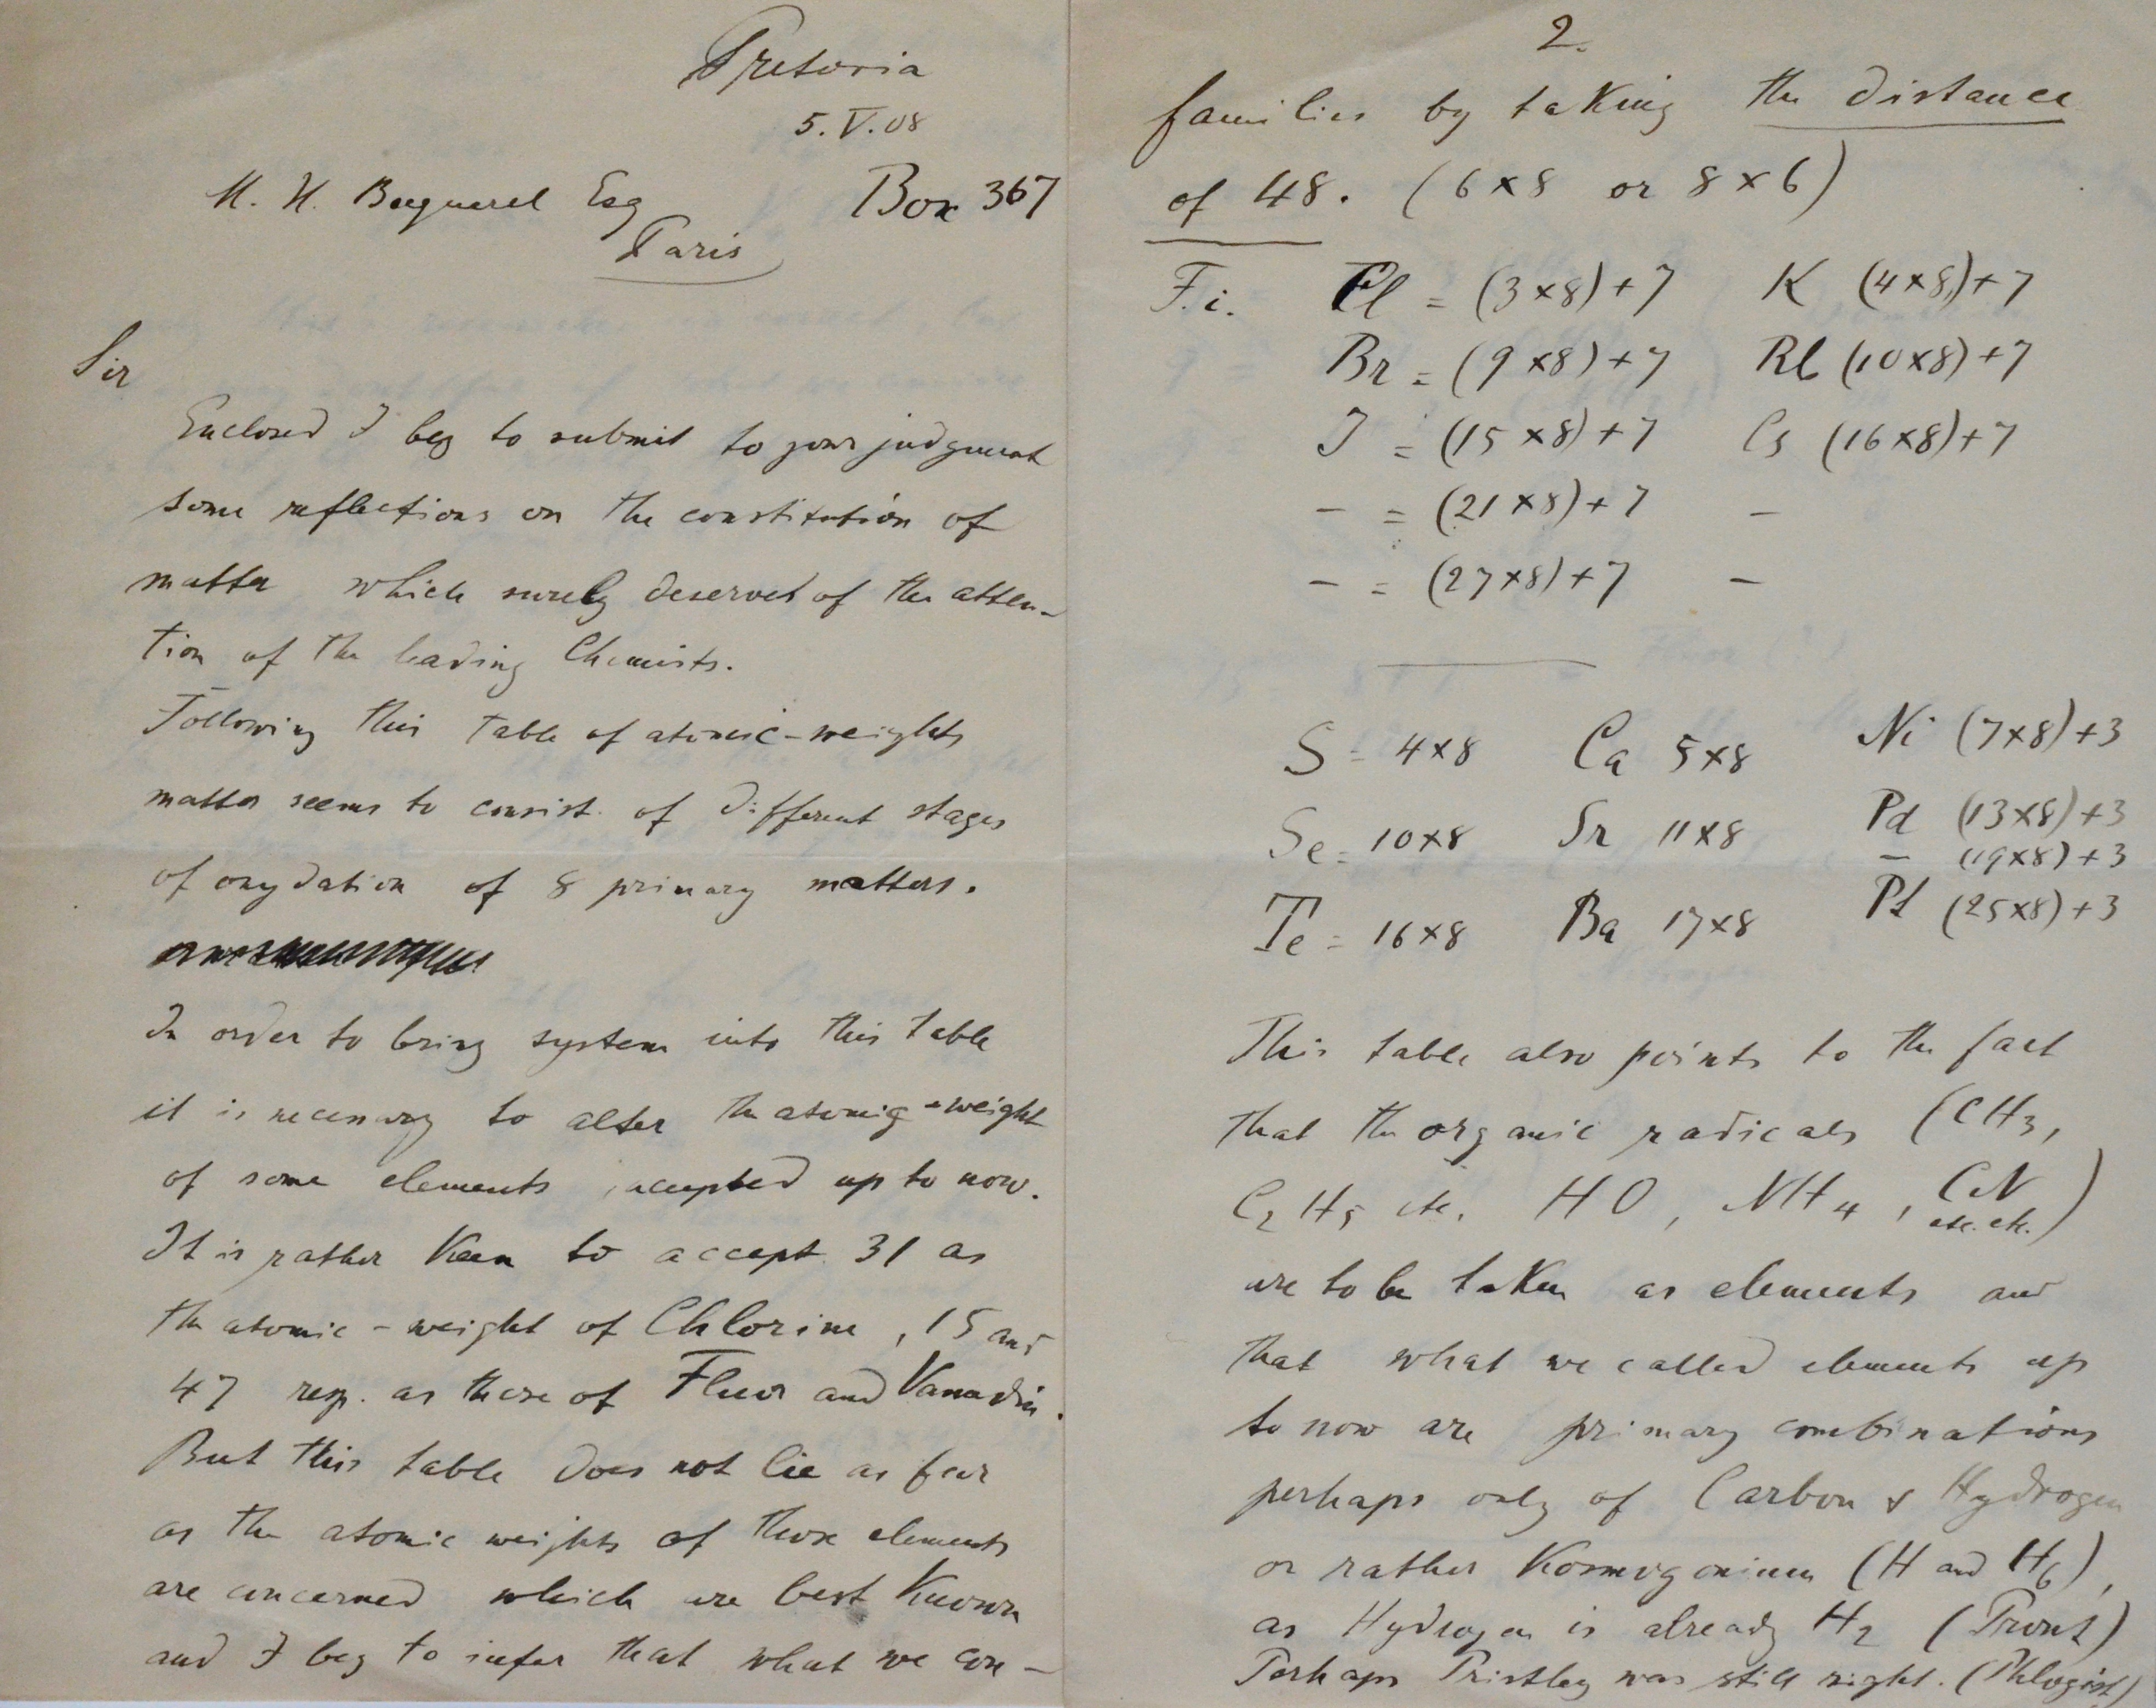 Pretoria
5.V.08
M. H. Becquerel Esq Box 367
Paris
Sir
Enclosed I beg to submit to your judgment
some reflections on the constitution of
matter which surely deserves of the atten-
tion of the leading Chemists.
Following this table of atomic-weights
matter seems to consist of different stages
of oxydation of 8 primary matters.
In order to bring system into this table
it is necessary to alter the atomic-weight
of some elements accepted up to now.
It is rather keen to accept 31 as
the atomic-weight of Chlorine, 15 and
47 resp. as those of Fluor and Vanadin.
But this table does not lie as far
as the atomic weights of those elements
are concerned which are best known
and I beg to infer that what we con-
2.
families by taking the distance
of 48. (6x8 or 8x6)
F.i. Cl = (3x8)+7 K (4x8)+7
Br = (9x8)+7 Rb (10x8)+7
J = (15x8)+7 Cs (16x8)+7
- = (21x8)+7 -
- = (27x8)+7 -
S = 4x8 Ca 5x8 Ni (7x8)+3
Se = 10x8 Sr 11x8 Pd (13x8)+3
- (19x8)+3
Te = 16x8 Ba 17x8 Pt (25x8)+3
This table also points to the fact
that the organic radicals (CH3,
C2H5 etc. HO, NH4, CN
etc. etc.)
are to be taken as elements and
that what we called elements up
to now are primary combinations
perhaps only of Carbon & Hydrogen
or rather Kosmogonium (H and H6),
as Hydrogen is already H2 (Prout)
Perhaps Pristley was still right. (Phlogist)